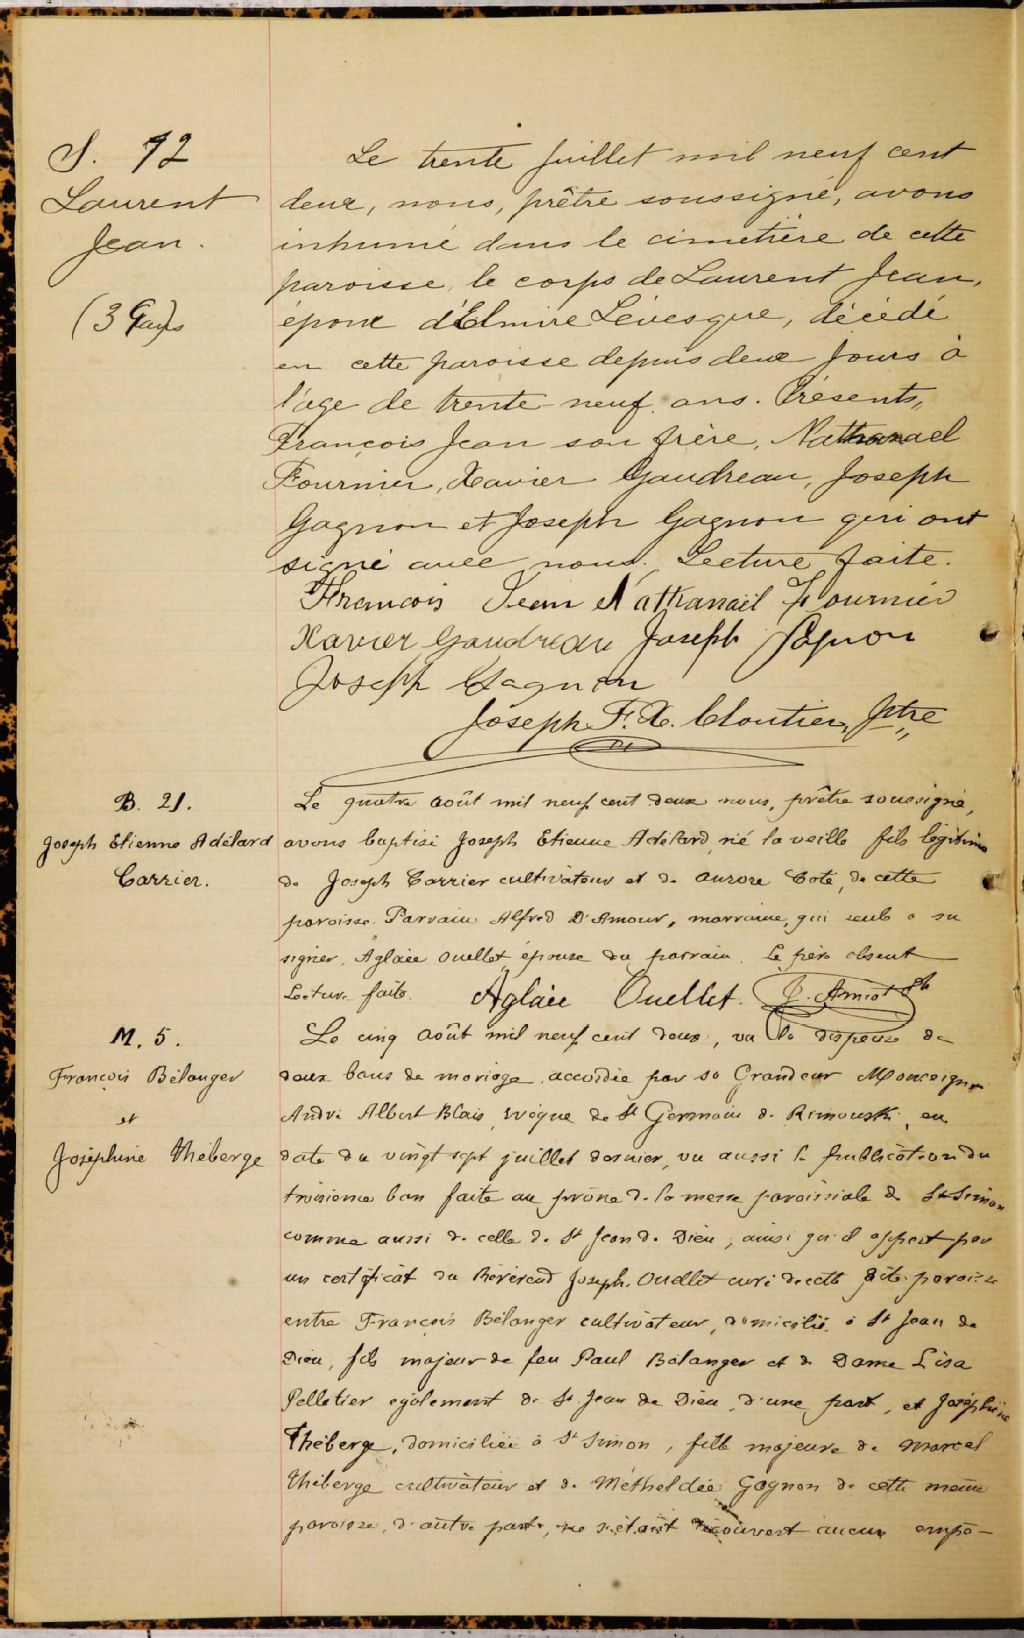 S. 12
Laurent
Jean.
Le trente juillet mil neuf cent
deux, nous, prêtre soussigné, avons
inhumé dans le cimetière de cette
paroisse, le corps de Laurent Jean,
époux d'Elmire Lévesque, décédé
en cette paroisse depuis deux jours à
l'age de trente neuf ans. Présents,,
François Jean son frère, Nathanael
Fournier, Xavier Gaudreau, Joseph
Gagnon et Joseph Gagnon qui ont
signé avec nous. Lecture faite.
François Jean Nathanaël Fournier
Xavier Gaudreau Joseph Gagnon
Joseph Gagnon
Joseph F. X. Cloutier, Ptre
B. 21.
Joseph Etienne Adélard
Carrier.
Le quatre août mil neuf cent deux nous, prêtre soussigné,
avons baptisé Joseph Etienne Adélard, né la veille fils légitime
de Joseph Carrier cultivateur et de Aurore Coté, de cette
paroisse. Parrain Alfred D'Amour, marraine, qui seule a su
signer, Aglaée Ouellet épouse du parrain. Le père absent
Lecture faite. Aglaée Ouellet.
M. 5.
François Bélanger
et
Joséphine Théberge
Le cinq août mil neuf cent deux, vu la dispense de
deux bans de mariage accordée par sa Grandeur Monseigneur
André Albert Blais, évêque de St Germain de Rimouski, en
date du vingt sept juillet dernier, vu aussi la publication du
troisième ban faite au prône de la messe paroissiale de St Simon
comme aussi de celle de St Jean de Dieu, ainsi qu'il appert par
un certificat du Révérend Joseph Ouellet curé de cette dite paroisse
entre François Bélanger cultivateur, domicilié à St Jean de
Dieu, fils majeur de feu Paul Bélanger et de Dame Lisa
Pelletier également de St Jean de Dieu, d'une part, et Joséphine
Théberge, domiciliée à St Simon, fille majeure de Marcel
Théberge cultivateur et de Métheldée Gagnon de cette même
paroisse, d'autre part, ne s'étant découvert aucun empê-